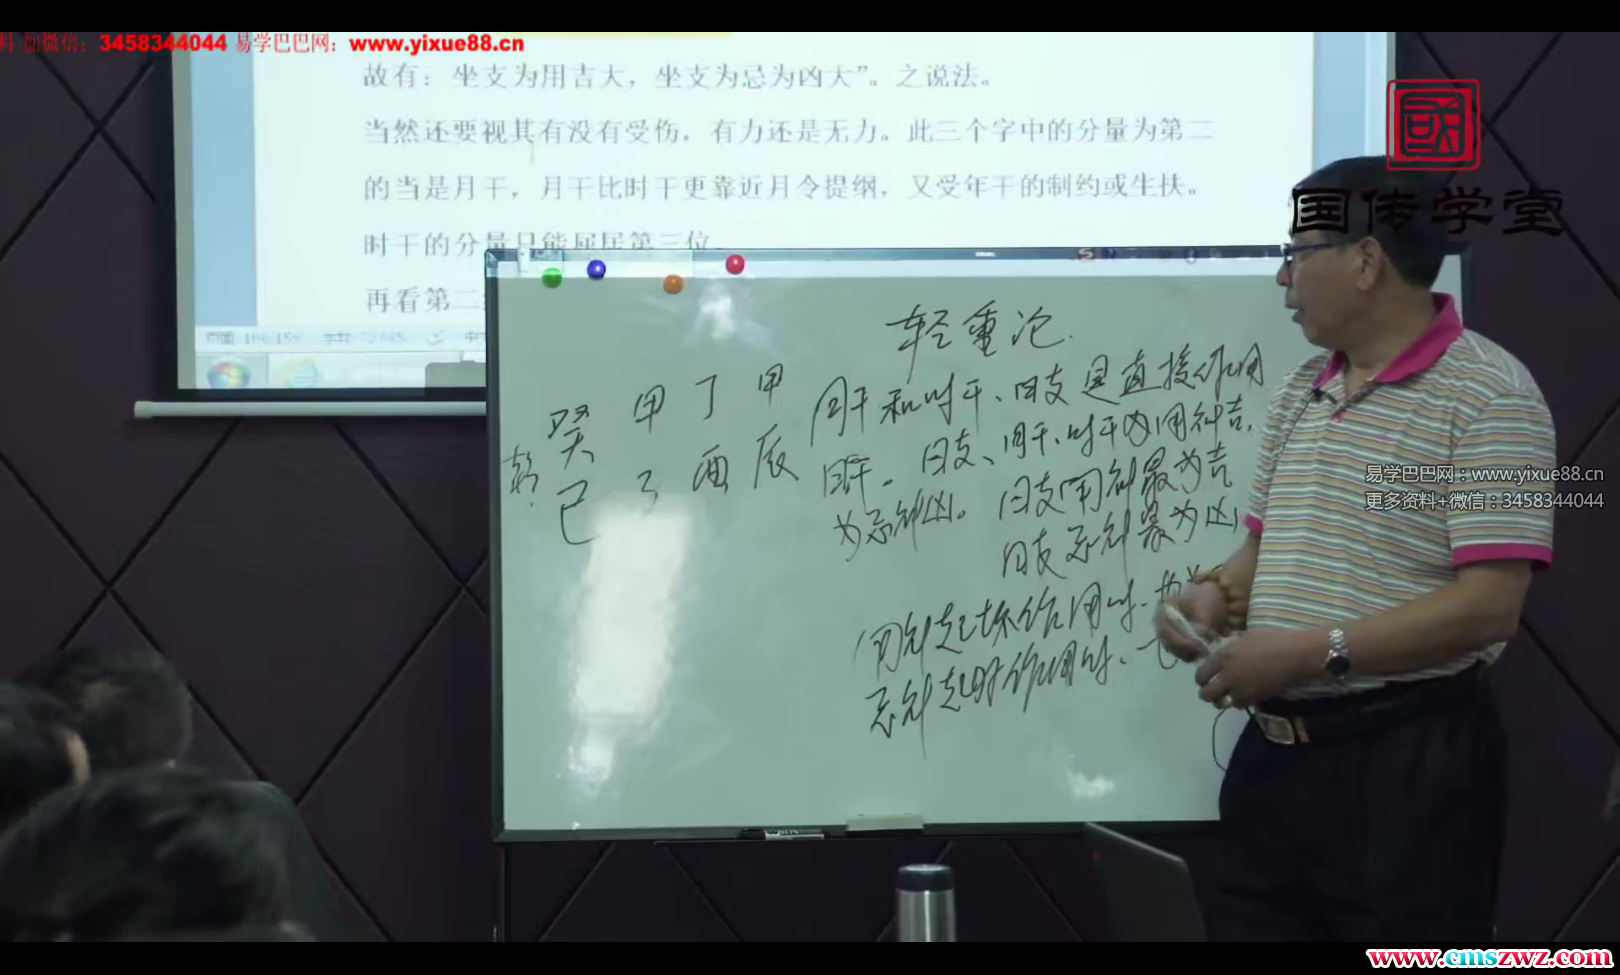 料+加微信：3458344044 易学巴巴网：www.yixue88.cn
故有：坐支为用吉大，坐支为忌为凶大”。之说法。
当然还要视其有没有受伤，有力还是无力。此三个字中的分量为第二
的当是月干，月干比时干更靠近月令提纲，又受年干的制约或生扶。
时干的分量只能屈居第三位
再看第二
国传学堂
轻重论.
癸 甲 丁 甲
乾: 巳 子 酉 辰
月干和时干、日支是直接作用
日干。日支、月干、时干为用神吉,
为忌神凶。日支用神最为吉
日支忌神最为凶
用神起坏作用时.
忌神起好作用时.
易学巴巴网：www.yixue88.cn
更多资料+微信：3458344044
www.cmszwz.com